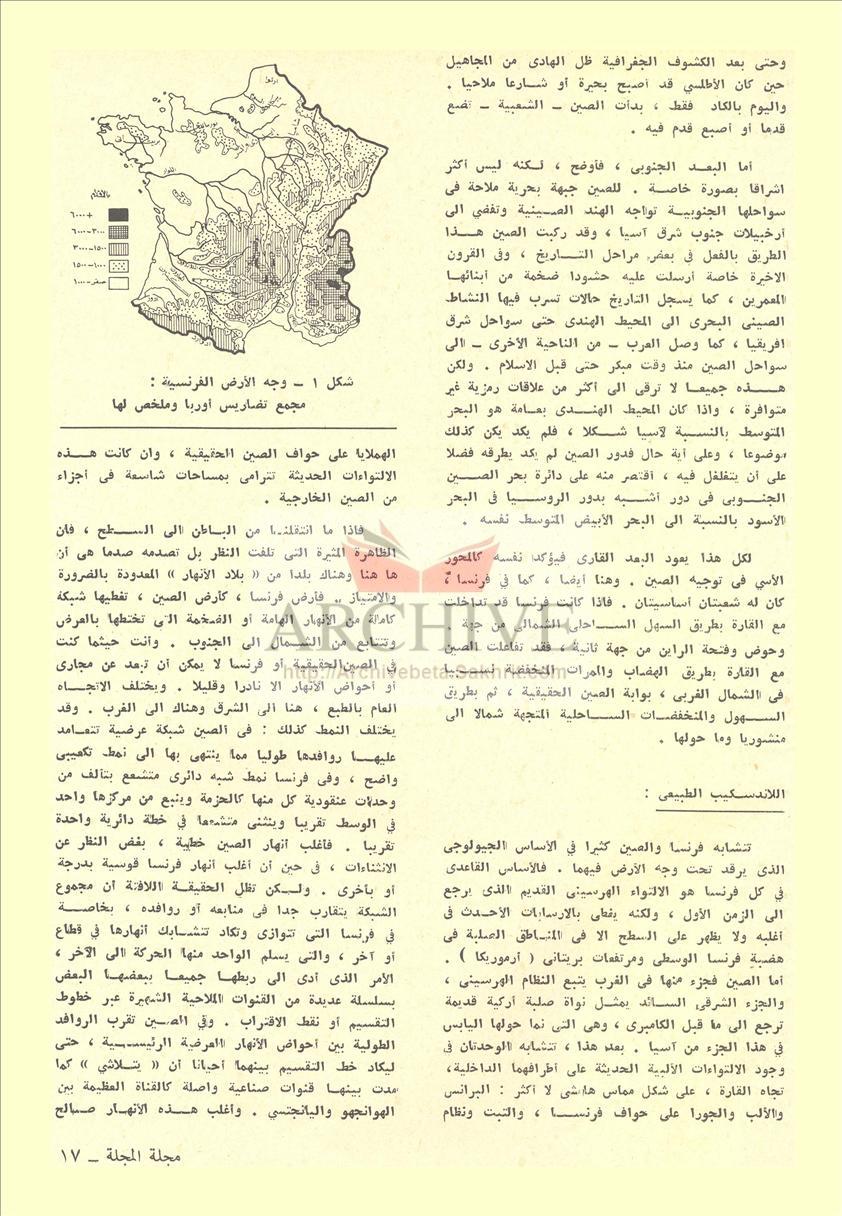 وحتى بعد الكشوف الجغرافية ظل الهادى من المجاهيل
حين كان الأطلسي قد أصبح بحيرة أو شارعا ملاحيا .
واليوم بالكاد فقط ، بدأت الصين ــ الشعبية ــ تضع
قدما أو أصبع قدم فيه .
أما البعد الجنوبى ، فأوضح ، لكنه ليس أكثر
اشراقا بصورة خاصة . للصين جبهة بحرية ملاحة فى
سواحلها الجنوبية تواجه الهند الصينية وتفضي الى
أرخبيلات جنوب شرق آسيا ، وقد ركبت الصين هذا
الطريق بالفعل في بعض مراحل التاريخ ، وفى القرون
الاخيرة خاصة أرسلت عليه حشودا ضخمة من أبنائها
المعمرين ، كما يسجل التاريخ حالات تسرب فيها النشاط
الصينى البحرى الى المحيط الهندى حتى سواحل شرق
افريقيا ، كما وصل العرب ــ من الناحية الأخرى ــ الى
سواحل الصين منذ وقت مبكر حتى قبل الاسلام . ولكن
هذه جميعا لا ترقى الى أكثر من علاقات رمزية غير
متوافرة ، واذا كان المحيط الهندى بعامة هو البحر
المتوسط بالنسبة لآسيا شكلا ، فلم يكد يكن كذلك
موضوعا ، وعلى أية حال فدور الصين لم يكد يطرقه فضلا
على أن يتغلغل فيه ، أقتصر منه على دائرة بحر الصين
الجنوبى فى دور أشبه بدور الروسيا فى البحر
الأسود بالنسبة الى البحر الأبيض المتوسط نفسه .
لكل هذا يعود البعد القارى فيؤكد نفسه كالمحور
الأسي في توجيه الصين . وهنا أيضا ، كما في فرنسا ،
كان له شعبتان أساسيتان . فاذا كانت فرنسا قد تداخلت
مع القارة بطريق السهل الساحلى الشمالى من جهة .
وحوض وفتحة الراين من جهة ثانية ، فقد تفاعلت الصين
مع القارة بطريق الهضاب والممرات المنخفضة نسبيا
فى الشمال الغربى ، بوابة الصين الحقيقية ، ثم بطريق
السهول والمنخفضات الساحلية المتجهة شمالا الى
منشوريا وما حولها .
اللاندسكيب الطبيعى :
تتشابه فرنسا والصين كثيرا في الأساس الجيولوجى
الذى يرقد تحت وجه الأرض فيهما . فالأساس القاعدى
في كل فرنسا هو الالتواء الهرسينى القديم الذى يرجع
الى الزمن الأول ، ولكنه يغطى بالارسابات الأحدث فى
أغلبه ولا يظهر على السطح الا فى المناطق الصلبة فى
هضبة فرنسا الوسطى ومرتفعات بريتانى ( أرموريكا ) .
أما الصين فجزء منها فى الغرب يتبع النظام الهرسينى ،
والجزء الشرقى السائد يمثل نواة صلبة أركية قديمة
ترجع الى ما قبل الكامبرى ، وهى التى نما حولها اليابس
في هذا الجزء من آسيا . بعد هذا ، تتشابه الوحدتان في
وجود الالتواءات الألبية الحديثة على أطرافهما الداخلية،
تجاه القارة ، على شكل مماس هامشى لا أكثر : البرانس
والألب والجورا على حواف فرنسا ، والتبت ونظام
بالأقدام
+ ٦٠٠٠
٣٠٠٠-٦٠٠٠
١٥٠٠-٣٠٠٠
١٠٠٠-١٥٠٠
صفر-١٠٠٠
شكل ١ ــ وجه الأرض الفرنسية :
مجمع تضاريس أوربا وملخص لها
الهملايا على حواف الصين الحقيقية ، وان كانت هذه
الالتواءات الحديثة تترامى بمساحات شاسعة فى أجزاء
من الصين الخارجية .
فاذا ما انتقلنا من الباطن الى السطح ، فان
الظاهرة المثيرة التى تلفت النظر بل تصدمه صدما هى أن
ها هنا وهناك بلدا من « بلاد الأنهار » المعدودة بالضرورة
والامتياز .. فأرض فرنسا ، كأرض الصين ، تغطيها شبكة
كاملة من الأنهار الهامة أو الضخمة التى تختطها بالعرض
وتتتابع من الشمال الى الجنوب . وأنت حيثما كنت
في الصين الحقيقية أو فرنسا لا يمكن أن تبعد عن مجارى
أو أحواض الأنهار الا نادرا وقليلا . ويختلف الاتجاه
العام بالطبع ، هنا الى الشرق وهناك الى الغرب . وقد
يختلف النمط كذلك : فى الصين شبكة عرضية تتعامد
عليها روافدها طوليا مما ينتهى بها الى نمط تكعيبى
واضح ، وفى فرنسا نمط شبه دائرى متشعع يتألف من
وحدات عنقودية كل منها كالحزمة وينبع من مركزها واحد
في الوسط تقريبا وينثنى متشععا في خطة دائرية واحدة
تقريبا . فأغلب أنهار الصين خطية ، بغض النظر عن
الانثناءات ، في حين أن أغلب أنهار فرنسا قوسية بدرجة
أو بأخرى . ولكن تظل الحقيقة اللافتة أن مجموع
الشبكة يتقارب جدا فى منابعه أو روافده ، بخاصة
في فرنسا التى تتوازى وتكاد تتشابك أنهارها في قطاع
أو آخر ، والتى يسلم الواحد منها الحركة الى الآخر ،
الأمر الذى أدى الى ربطها جميعا ببعضها البعض
بسلسلة عديدة من القنوات الملاحية الشهيرة عبر خطوط
التقسيم أو نقط الاقتراب . وفي الصين تقرب الروافد
الطولية بين أحواض الأنهار العرضية الرئيسية ، حتى
ليكاد خط التقسيم بينهما أحيانا أن « يتلاشي » كما
مدت بينها قنوات صناعية واصلة كالقناة العظيمة بين
الهوانجهو واليانجتسي . وأغلب هذه الأنهار صالح
مجلة المجلة ــ ١٧
ARCHIVE